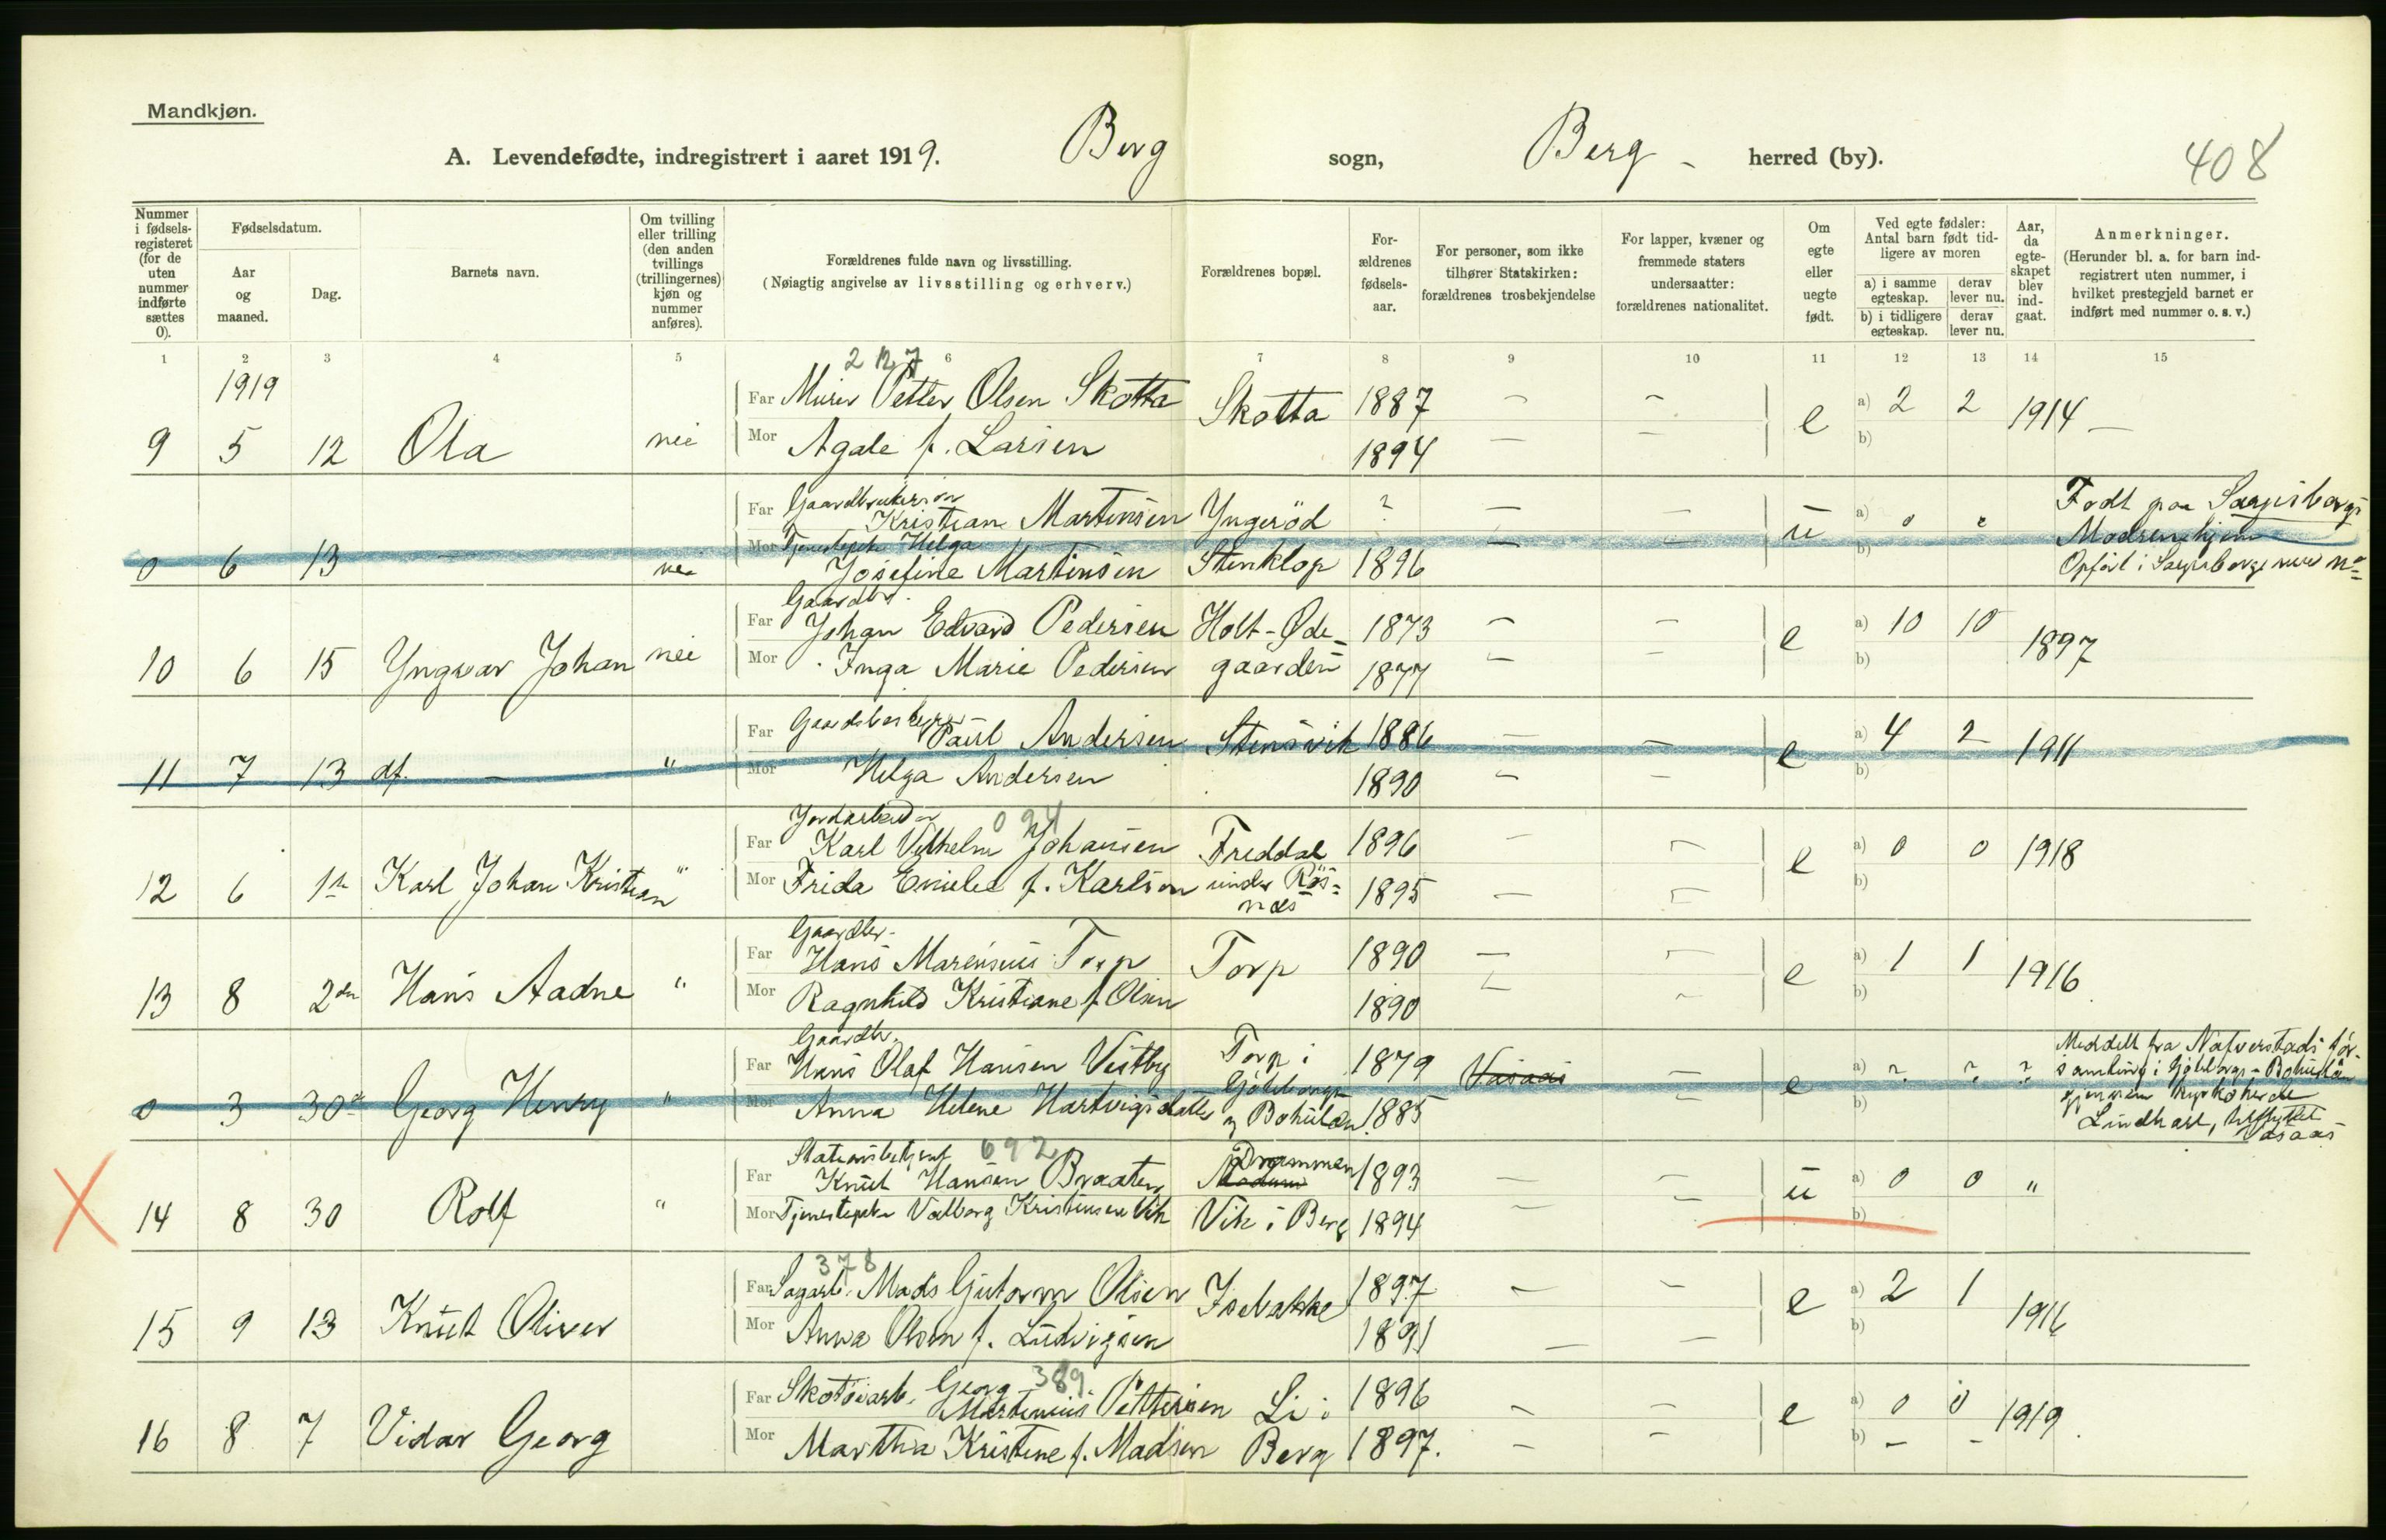 Mandkjøn.
A. Levendefødte, indregistrert i aaret 1919. Berg sogn, Berg - herred (by). 408
Nummer i fødsels-registeret (for de uten nummer indførte sættes 0).
Fødselsdatum.
Aar og maaned.
Dag.
Barnets navn.
Om tvilling eller trilling (den anden tvillings (trillingernes) kjøn og nummer anføres).
Forældrenes fulde navn og livsstilling.
(Nøiagtig angivelse av livsstilling og erhverv.)
Forældrenes bopæl.
For-ældrenes fødsels-aar.
For personer, som ikke tilhører Statskirken: forældrenes trosbekjendelse
For lapper, kvæner og fremmede staters undersaatter: forældrenes nationalitet.
Om egte eller uegte født.
Ved egte fødsler: Antal barn født tid-ligere av moren
a) i samme egteskap. derav lever nu.
b) i tidligere egteskap. derav lever nu.
Aar, da egte-skapet blev ind-gaat.
Anmerkninger.
(Herunder bl. a. for barn ind-registrert uten nummer, i hvilket prestegjeld barnet er indført med nummer o. s. v.)
1 2 3 4 5 6 7 8 9 10 11 12 13 14 15
1919
Far Murer Petter Olsen Skotta Skotta 1887 — — e a) 2 2 1914 —
9 5 12 Ola nei Mor Agate f. Larsen 1894 — — b)
Far Gaardbrukersøn
Kristian Martinsen Yngeröd ? — — u a) 0 0 Født paa Sarpsborgs
Mor Tjenestepike Helga — — b) Mødrenehjem
0 6 13 — nei Josefine Martinsen Stenklop 1896 Opført i Sarpsborg med No
Gaardbr.
Far Johan Edvard Pedersen Holt-Øde- 1873 — — e a) 10 10 1897
10 6 15 Yngvar Johan nei Mor Inga Marie Pedersen gaarden 1877 — — b)
Far Gaardsbestyrer Paul Andersen Stensvik 1886 — — e a) 4 2 1911
11 7 13 df. — " Mor Helga Andersen 1890 — — b)
Jordarbeider 094
Far Karl Vilhelm Johansen Freddal 1896 — — e a) 0 0 1918
12 6 1ste Karl Johan Kristian " Mor Frida Emilie f. Karlson under Røs- 1895 — — b)
næs
Gaardbr.
Far Hans Marensius Torp Torp 1890 — — e a) 1 1 1916
13 8 2den Hans Aadne " Mor Ragnhild Kristiane f. Olsen 1890 — — b)
Gaardbr.
Far Hans Olaf Hansen Vestby Torp i 1879 Vasaas — e a) ? ? ? Meddelt fra Nafverstads för-
samling i Göteborgs- Bohuslän
0 3 30te Georg Henry " Mor Anna Helene Hartvigsdatter Göteborgs og Bohuslän 1885 b) gjennem kyrkoherde
Lindhart, Vasaas
Stationsbetjent 692
Far Knut Hansen Braaten Drammen 1893 — — u a) 0 0 "
14 8 30 Rolf " Mor Tjenestepike Valborg Kristiansen Vik Vik i Berg 1894 — — b)
378
Far Sagarb. Mads Gutorm Olsen Isebakke 1897 — — e a) 2 1 1916
15 9 13 Knut Oliver Mor Anna Olsen f. Ludvigsen 1891 — — b)
389
Far Skotöiarb. Georg Martinius Pettersen Li i 1896 — — e a) 0 0 1919.
16 8 7 Vidar Georg Mor Martha Kristine f. Madsen Berg 1897. — — b) — —